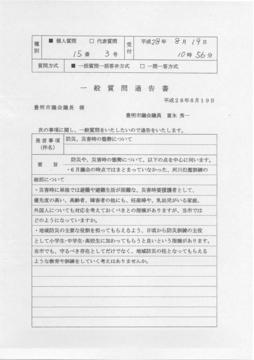 種別
■ 個人質問 □ 代表質問
15番 3号
受付
平成28年 8月19日
10時56分
質問方式
■ 一括質問一括答弁方式 □ 一問一答方式
一般質問通告書
平成28年8月19日
豊明市議会議長 様
豊明市議会議員 富永 秀一
次の事項に関し、一般質問をいたしたいので通告をします。
発言事項(件名)
防災、災害時の態勢について
要旨
防災や、災害時の態勢について、以下の点を中心に伺います。
・6月議会の時点ではまとまっていなかった、河川氾濫訓練の総括について
・災害時に単独では避難や避難生活が困難な、災害時要援護者として、
優先度の高い、高齢者、障害者の他にも、妊産婦や、乳幼児がいる家庭、
外国人についても対応を考えておくべきとの指摘がありますが、当市では
どのようになっていますか。
・地域防災の主要な役割を担ってもらえるよう、日頃から防災訓練の主役
として小学生・中学生・高校生に加わってもらうと良いという指摘があります。
当市でも、守るべき存在としてだけでなく、地域防災の柱となってもらえる
ような教育や訓練をしていく考えはありませんか。